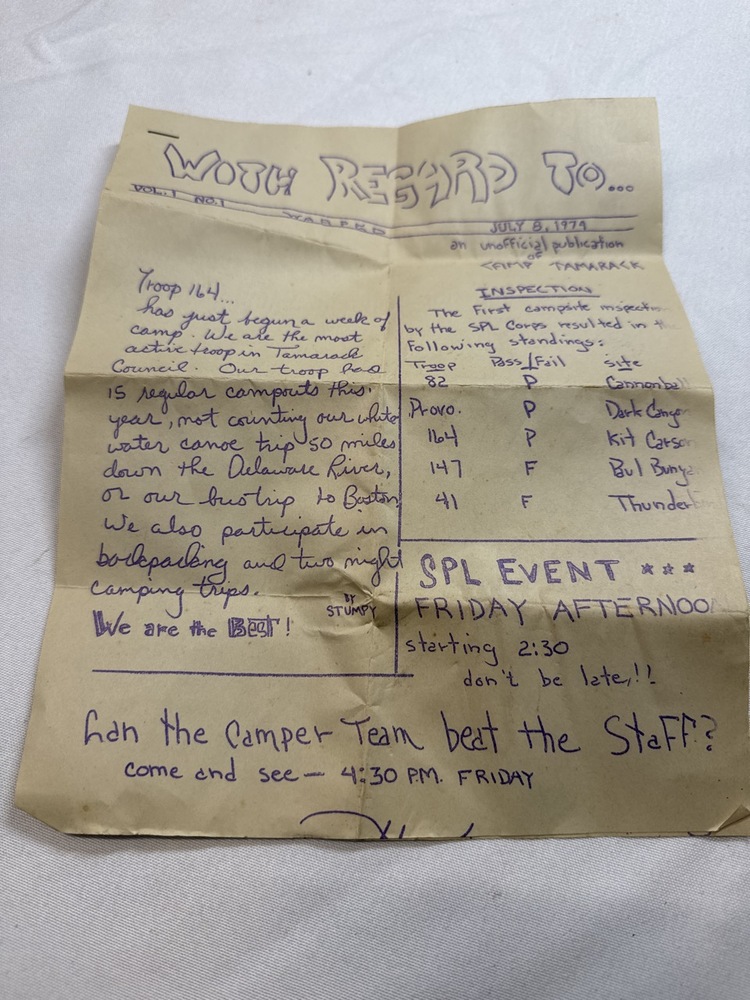 WOTH REGARD TO...
VOL. 1 NO. 1 WARPED JULY 8, 1974
an unofficial publication
OF
CAMP TAMARACK
Troop 164...
has just begun a week of
camp. We are the most
active troop in Tamarack
Council. Our troop had
15 regular campouts this
year, not counting our white
water canoe trip 50 miles
down the Delaware River,
or our bustrip to Boston
We also participate in
backpacking and two night
camping trips.
BY
STUMPY
We are the Best!
INSPECTION
The First campsite inspection
by the SPL Corps resulted in
Following standings:
Troop Pass/Fail site
82 P Cannonball
Provo. P Dark Canyo
164 P Kit Carson
147 F Bul Bunya
41 F Thunder
SPL EVENT ***
FRIDAY AFTERNOON
starting 2:30
don't be late!!
Can the Camper Team beat the Staff?
come and see - 4:30 P.M. FRIDAY